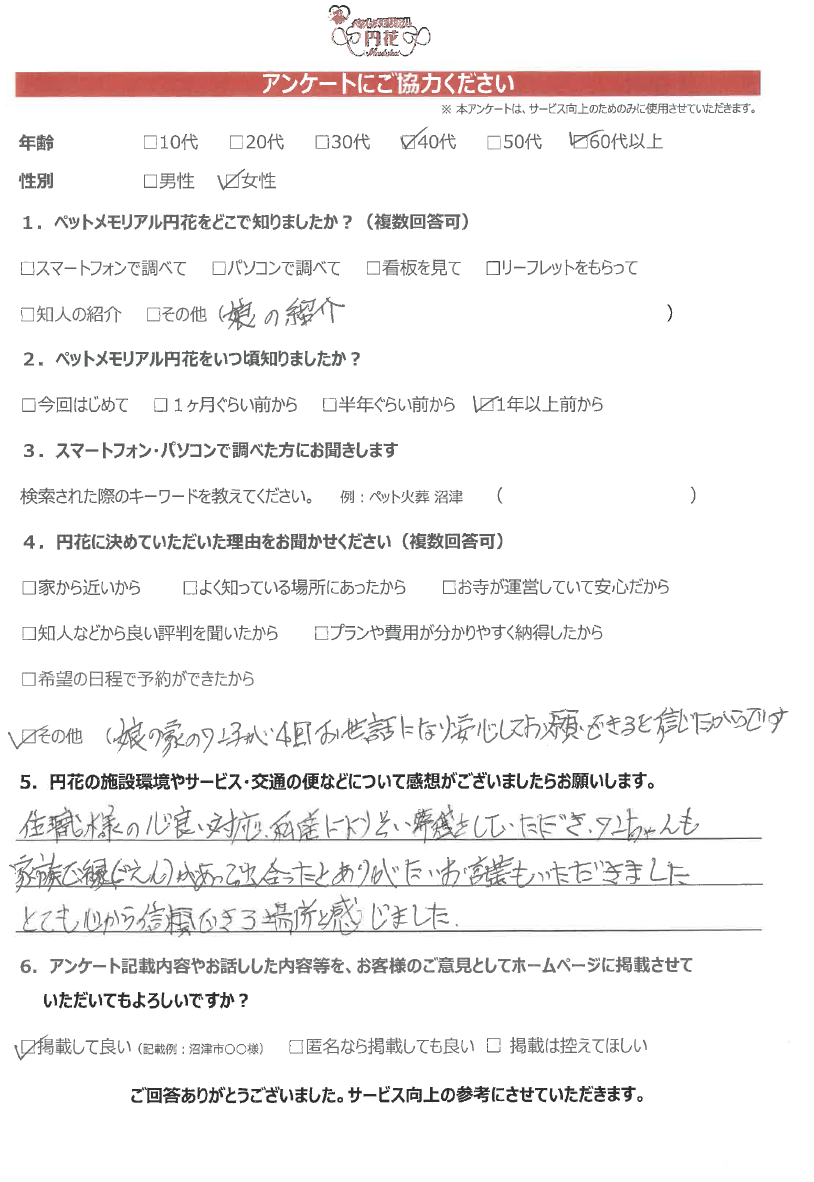 円花
アンケートにご協力ください
※ 本アンケートは、サービス向上のためのみに使用させていただきます。
年齢 □10代 □20代 □30代 ☑40代 □50代 ☑60代以上
性別 □男性 ☑女性
1．ペットメモリアル円花をどこで知りましたか？（複数回答可）
□スマートフォンで調べて □パソコンで調べて □看板を見て □リーフレットをもらって
□知人の紹介 □その他（娘の紹介 ）
2．ペットメモリアル円花をいつ頃知りましたか？
□今回はじめて □１ヶ月ぐらい前から □半年ぐらい前から ☑1年以上前から
3．スマートフォン・パソコンで調べた方にお聞きします
検索された際のキーワードを教えてください。 例：ペット火葬 沼津 （ ）
4．円花に決めていただいた理由をお聞かせください（複数回答可）
□家から近いから □よく知っている場所にあったから □お寺が運営していて安心だから
□知人などから良い評判を聞いたから □プランや費用が分かりやすく納得したから
□希望の日程で予約ができたから
☑その他 （娘の家のワン子が4回お世話になり安心してお願いできると信じたからです
5．円花の施設環境やサービス・交通の便などについて感想がございましたらお願いします。
住職様の心良い対応、 していただき、ワンちゃんも
家族で縁(えん)があって出合ったとありがたいお言葉もいただきました
とても心から信頼できる場所と感じました.
6．アンケート記載内容やお話しした内容等を、お客様のご意見としてホームページに掲載させて
いただいてもよろしいですか？
☑掲載して良い（記載例：沼津市〇〇様） □匿名なら掲載しても良い □ 掲載は控えてほしい
ご回答ありがとうございました。サービス向上の参考にさせていただきます。